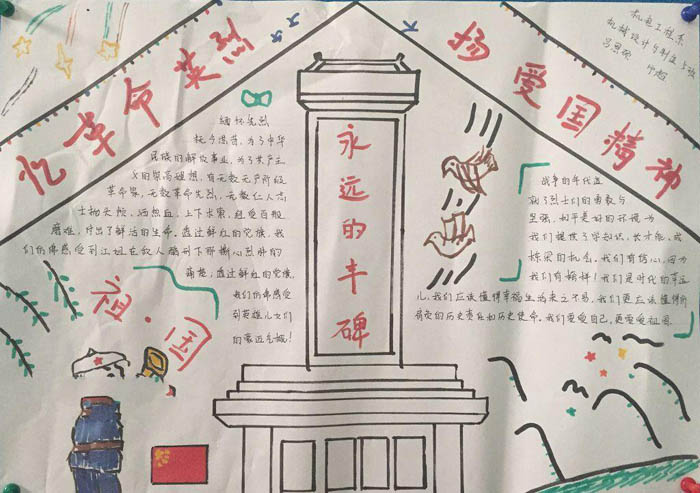 忆革命英烈
扬爱国精神
机电工程系
机械设计与制造
缅怀先烈
抚今追昔，为了中华
民族的解放事业，为了共产主
义的崇高理想，有无数无产阶级
革命家，无数革命先烈，无数仁人志
士抛头颅，洒热血，上下求索，经受百般
磨难，付出了鲜活的生命。透过鲜红的党旗，我
们仿佛感受到江姐在敌人酷刑下那撕心裂肺的
痛楚，透过鲜红的党旗，
我们仿佛感受
到英雄儿女们
的豪迈气概！
祖·国
永远的丰碑
战争的年代造
就了烈士们的勇敢与
坚强，和平美好的环境为
我们提供了学知识，长才能，成
栋梁的机会。我们有信心，因为
我们有榜样！我们是时代的幸运
儿，我们应该懂得幸福生活来之不易，我们更应该懂得所
肩负的历史责任和历史使命。我们要爱自己，更要爱祖国